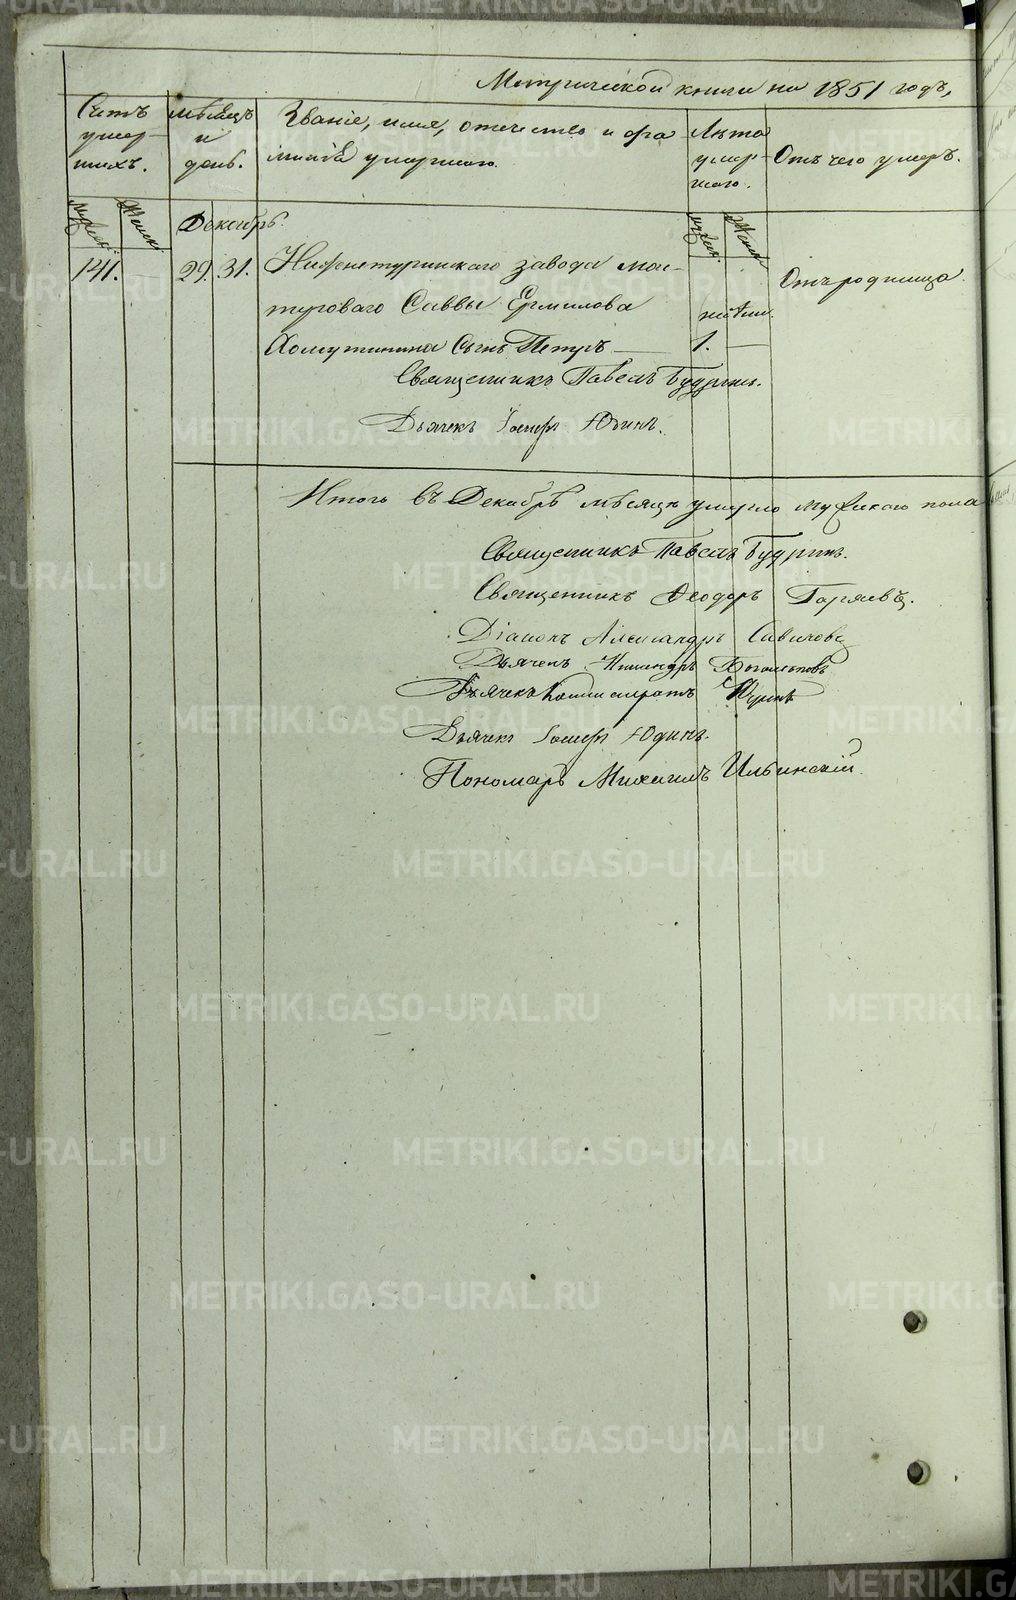 Метрической книги на 1851 годъ,
Счетъ умер-шихъ.
мѣсяцъ и день.
Званіе, имя, отечество и фа
миліѣ умершаго.
Лѣта умер-шаго.
Отъ чего умеръ.
мужеск. женск.
Декабрь.
мужеск. женск.
141. — 29. 31. Нижнетуринскаго завода мас-
Отъ родимца.
тероваго Саввы Ермилова
недѣли.
Хомутинина Сынъ Петръ — 1. —
Священникъ Павелъ Будринъ.
Дьячекъ Іосифъ Юдинъ.
Итого въ Декабрѣ мѣсяцѣ умерло мужскаго пола
Священникъ Павелъ Будринъ.
Священникъ Ѳеодоръ Горяевъ.
Діаконъ Александръ Савичовъ
Дьячекъ Никандръ
Дьячекъ
Дьячекъ Іосифъ Юдинъ.
Пономарь Михаилъ Ильинскій.
METRIKI.GASO-URAL.RU